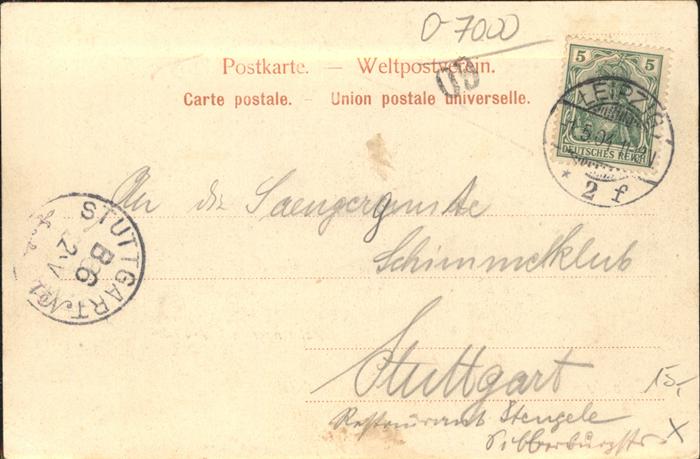 O-7000
Postkarte. — Weltpostverein.
Carte postale. – Union postale universelle.
5 5
DEUTSCHES REICH
LEIPZIG
* 2 f
An die
Schimmelklub
Stuttgart
Restaurant Stengele
15,-
X
STUTTGART No1